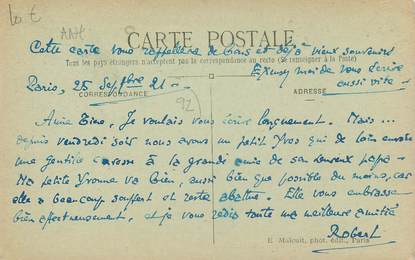 10 €
AA16
CARTE POSTALE
Cette carte vous rappellera de bons et déjà vieux souvenirs
Tous les pays étrangers n'acceptent pas la correspondance au recto (Se renseigner à la Poste)
Excusez moi de vous écrire
aussi vite -
Paris, 25 Septbre 21 -
CORRESPONDANCE
ADRESSE
92
Amie Tine, Je voulais vous écrire longuement. Mais ...
depuis vendredi soir nous avons un petit Yves qui de loin envoie
une gentille caresse à la grande amie de son heureux papa -
Ma petite Yvonne va bien, aussi bien que possible du moins, car
elle a beaucoup souffert et reste abattue. Elle vous embrasse
bien affectueusement, et je vous redis toute ma meilleure amitié
Robert
E. Malcuit, phot. édit., Paris